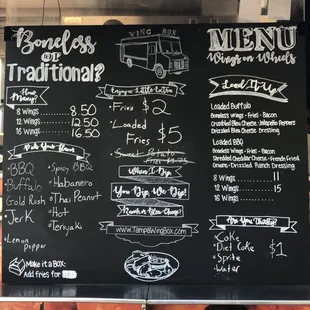 Boneless
or
Traditional?
How
Many?
8 Wings 8.50
12 Wings 12.50
16 Wings 16.50
Pick Your Flavor
BBQ
Buffalo
Gold Rush
Jerk
Lemon
Pepper
Spicy BBQ
Habanero
Thai Peanut
Hot
Teriyaki
Make it a Box:
Add fries for
WING BOX
Enjoy a Little Extra
Fries $2
Loaded
Fries $5
Sweet Potato
Fries
When I Dip
You Dip, We Dip!
Ranch or Bleu Cheese
www.TampaWingBox.com
MENU
Wings on Wheels
Load It Up
Loaded Buffalo
Boneless wings - Fries - Bacon
Crumbled Bleu Cheese - Jalapeño Peppers
Drizzled Bleu Cheese Dressing
Loaded BBQ
Boneless wings - Fries - Bacon
Shredded Cheddar Cheese - French Fried
Onions - Drizzled Ranch Dressing
8 Wings 11
12 Wings 15
16 Wings
Are You Thirsty?
Coke
Diet Coke $1
Sprite
Water